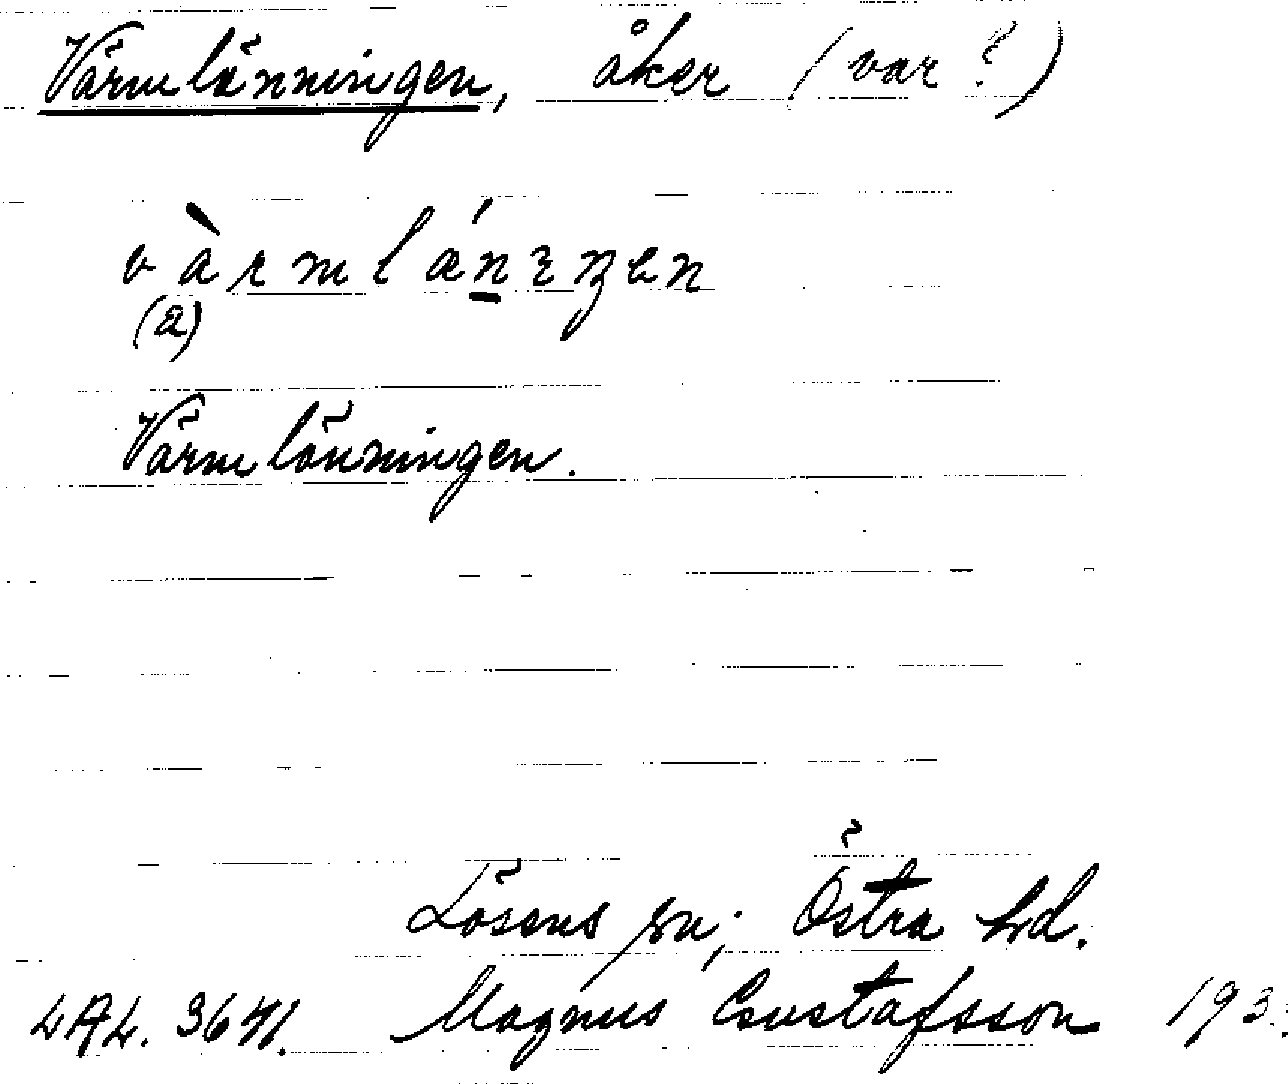 Värmlänningen, åker (var?)
vàrmlǽnıŋen
(a)
Värmlänningen.
Lösens sn; Östra hd.
LAL. 3641. Magnus Gustafsson 193